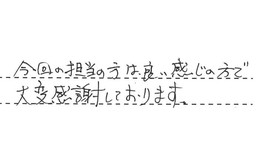 今回の担当の方は良い感じの方で
大変感謝しております。